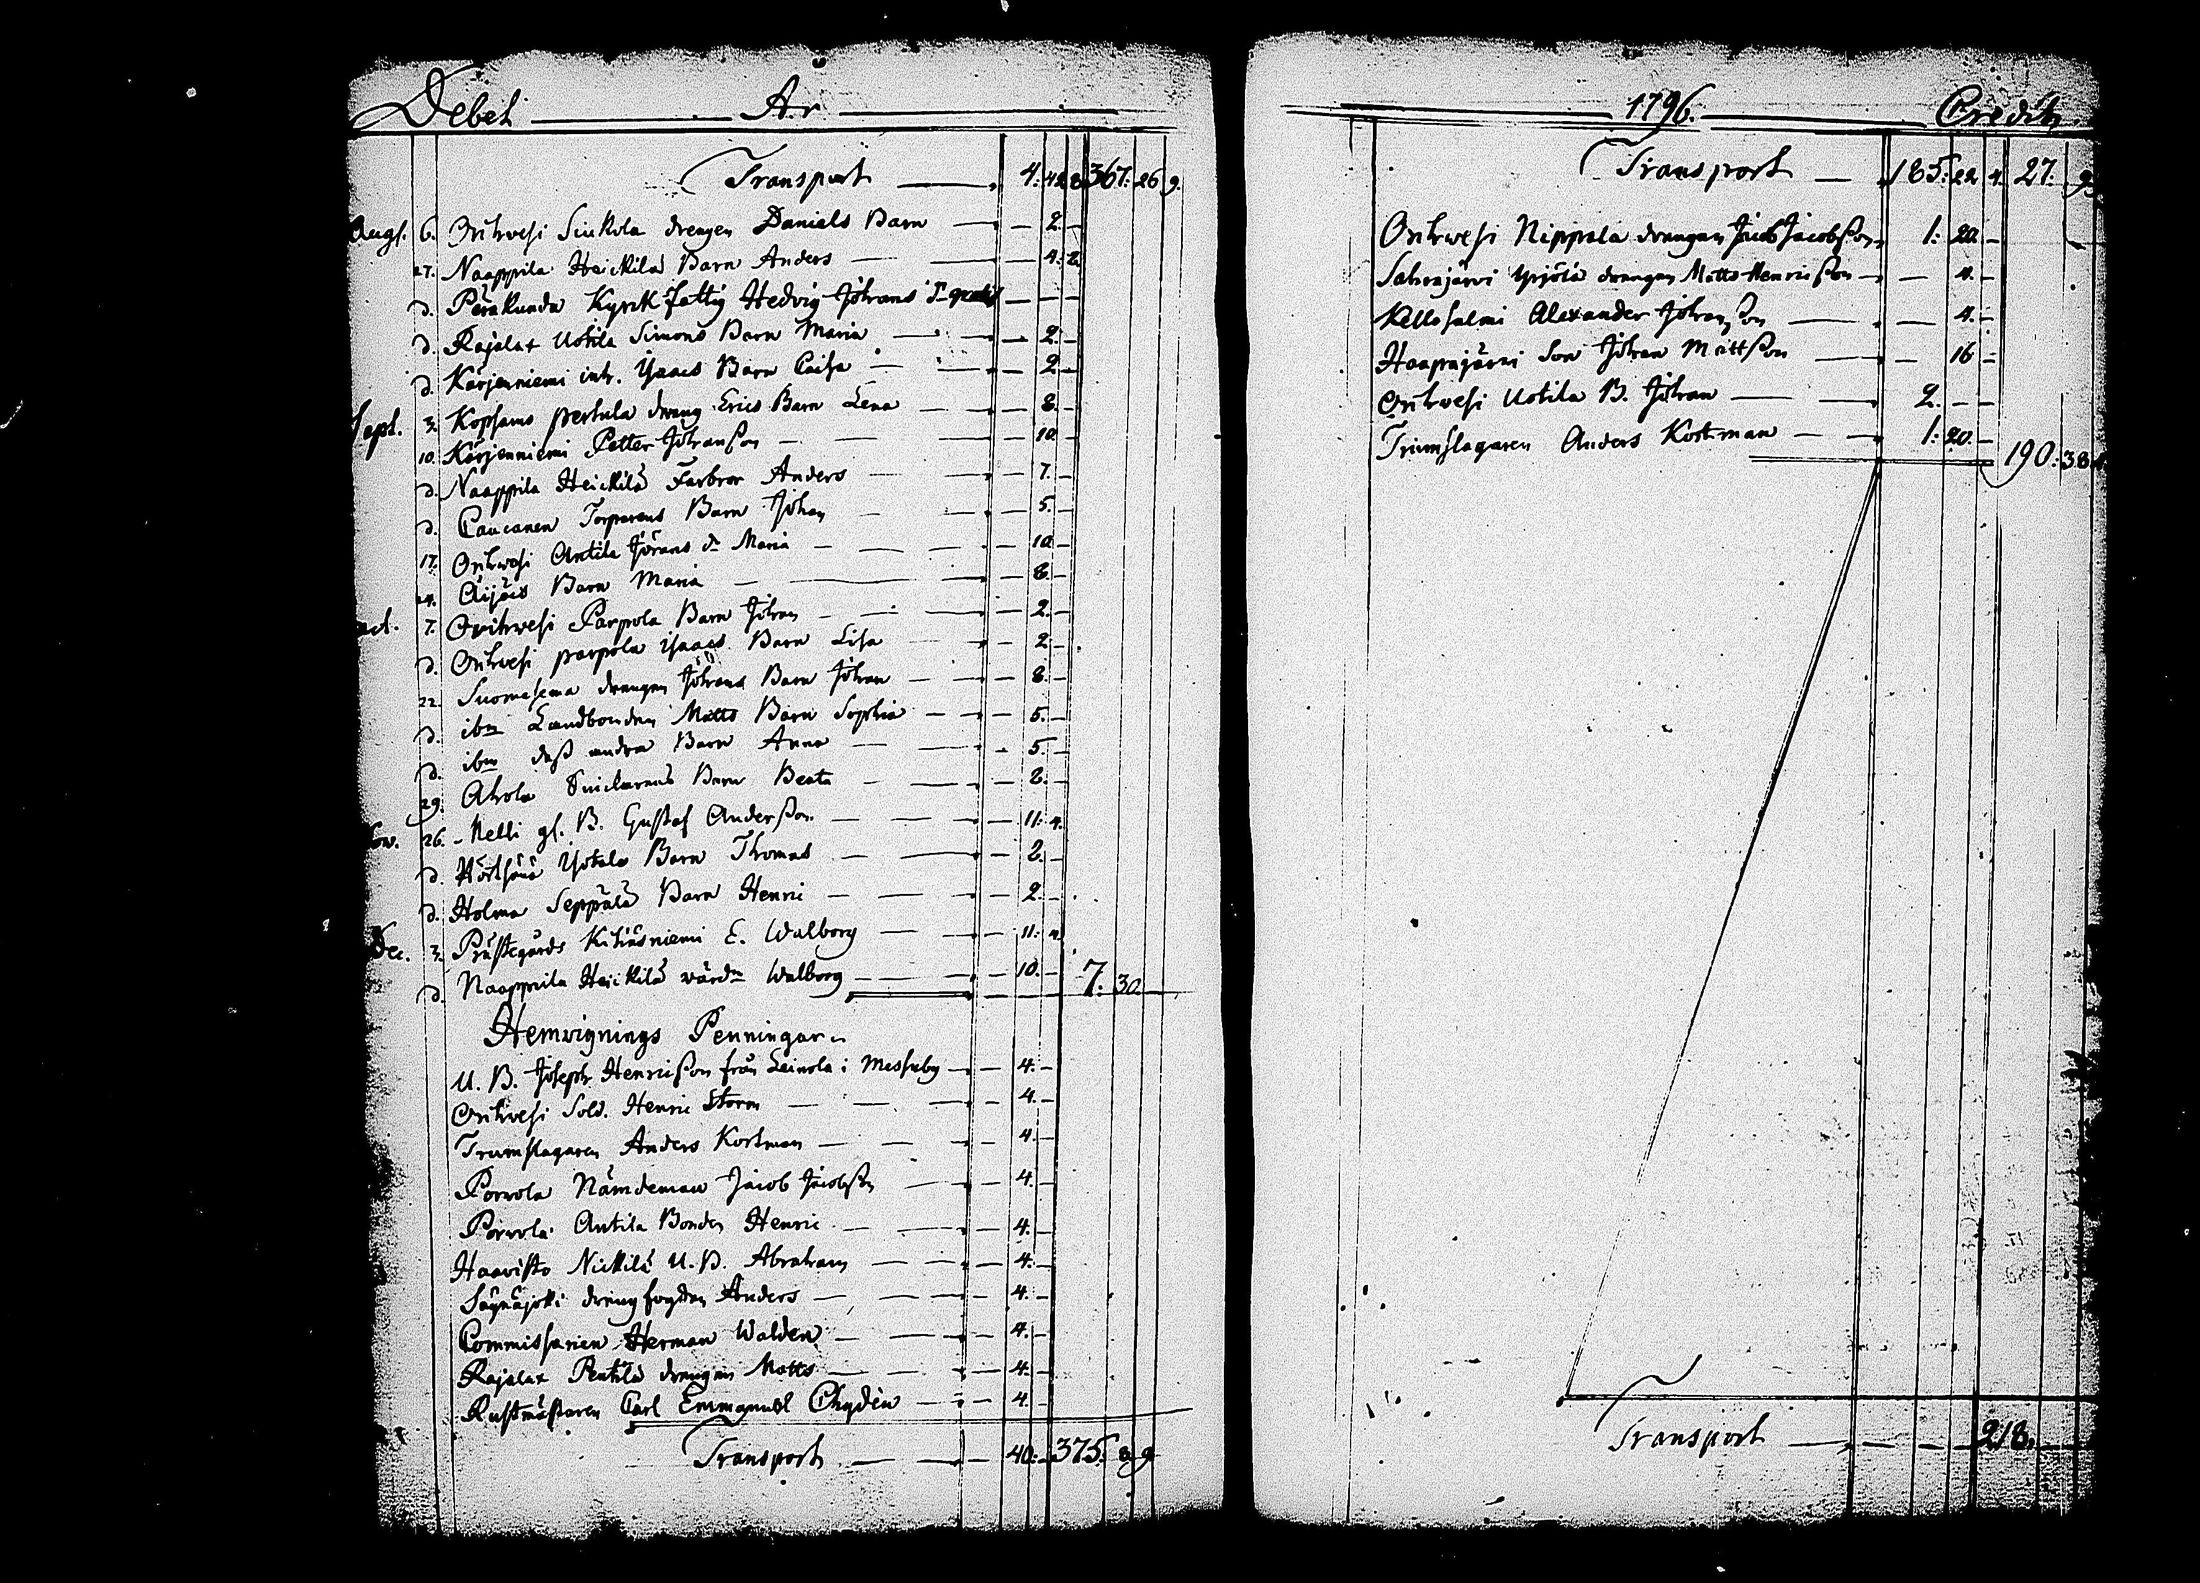 Debet A:r
Transport 4: 42 8 367: 26 9.
Aug. 6. Orihvesi Siukola drengen Daniels Barn 2.
27. Naappila Heickilä Barn Anders 4: 2
d. Peräkunda Kyrck fattig Hedvig Johans D. gratis
d. Rajalax Uotila Simons Barn Maria 2.
d. Karjenniemi inh. Isaacs Barn Caisa 2
Sept. 3. Kopsamo Pertula dreng Erics Barn Lena 8.
10. Karjenniemi Petter Johansson 10.
d. Naappila Heickilä Farbror Anders 7.
d. Torparens Barn Johan 5.
17. Orihvesi Antila Görans d:r Maria 10
24. Äijäis Barn Maria 8.
oct. 7. Orihvesi Parpola Barn Johan 2.
d. Orihvesi parpola Isaacs Barn Lisa 2.
22. Suomasema drengen Johans Barn Johan 8.
d. ibm Landbonden Matts Barn Sophia 5.
d. ibm dess andra Barn Anna 5.
29. Ahola Snickarens Barn Beata 2.
Nov. 26. Kelli gl. B. Gustaf Andersson 11: 4.
d. Barn Thomas 2.
d. Holma Seppälä Barn Henric 2.
Dec. 3. Prästegårds Kitiäsniemi E. Walborg 11: 4
d. Naappila Heickilä värd:n Walborg 10. 7: 30.
Hemvignings Penningar
U. B. Joseph Henricsson från Leinola i Messuby 4.
Orihvesi Sold. Henric Storm 4.
Trumslagaren Anders Kortman 4.
Porvola Nämdeman Jacob Jacobsson 4.
Porvola Antila Bonden Henric 4.
Haavisto Nickilä U. B. Abraham 4.
Säynäjoki drengfogden Anders 4.
Commissarien Herman Walden 4.
Rajalax Pentilä drengen Matts 4.
Rustmästaren Carl Emmanuel Chydén 4.
Transport 40: 375. 8 9
1796. Credit
Transport 185: 22 4. 27. 9.
Orihwesi Nippala drengen Jacob Jacobsson 1: 20.
Sahrajärvi Yrjölä drengen Matts Henricsson 4.
Kellosalmi Alexander Johansson 4.
Haapajärvi Son Johan Mattsson 16
Orihvesi Uotila B. Johan 2.
Trumslagaren Anders Kortman 1: 20. 190: 38
Transport 218.